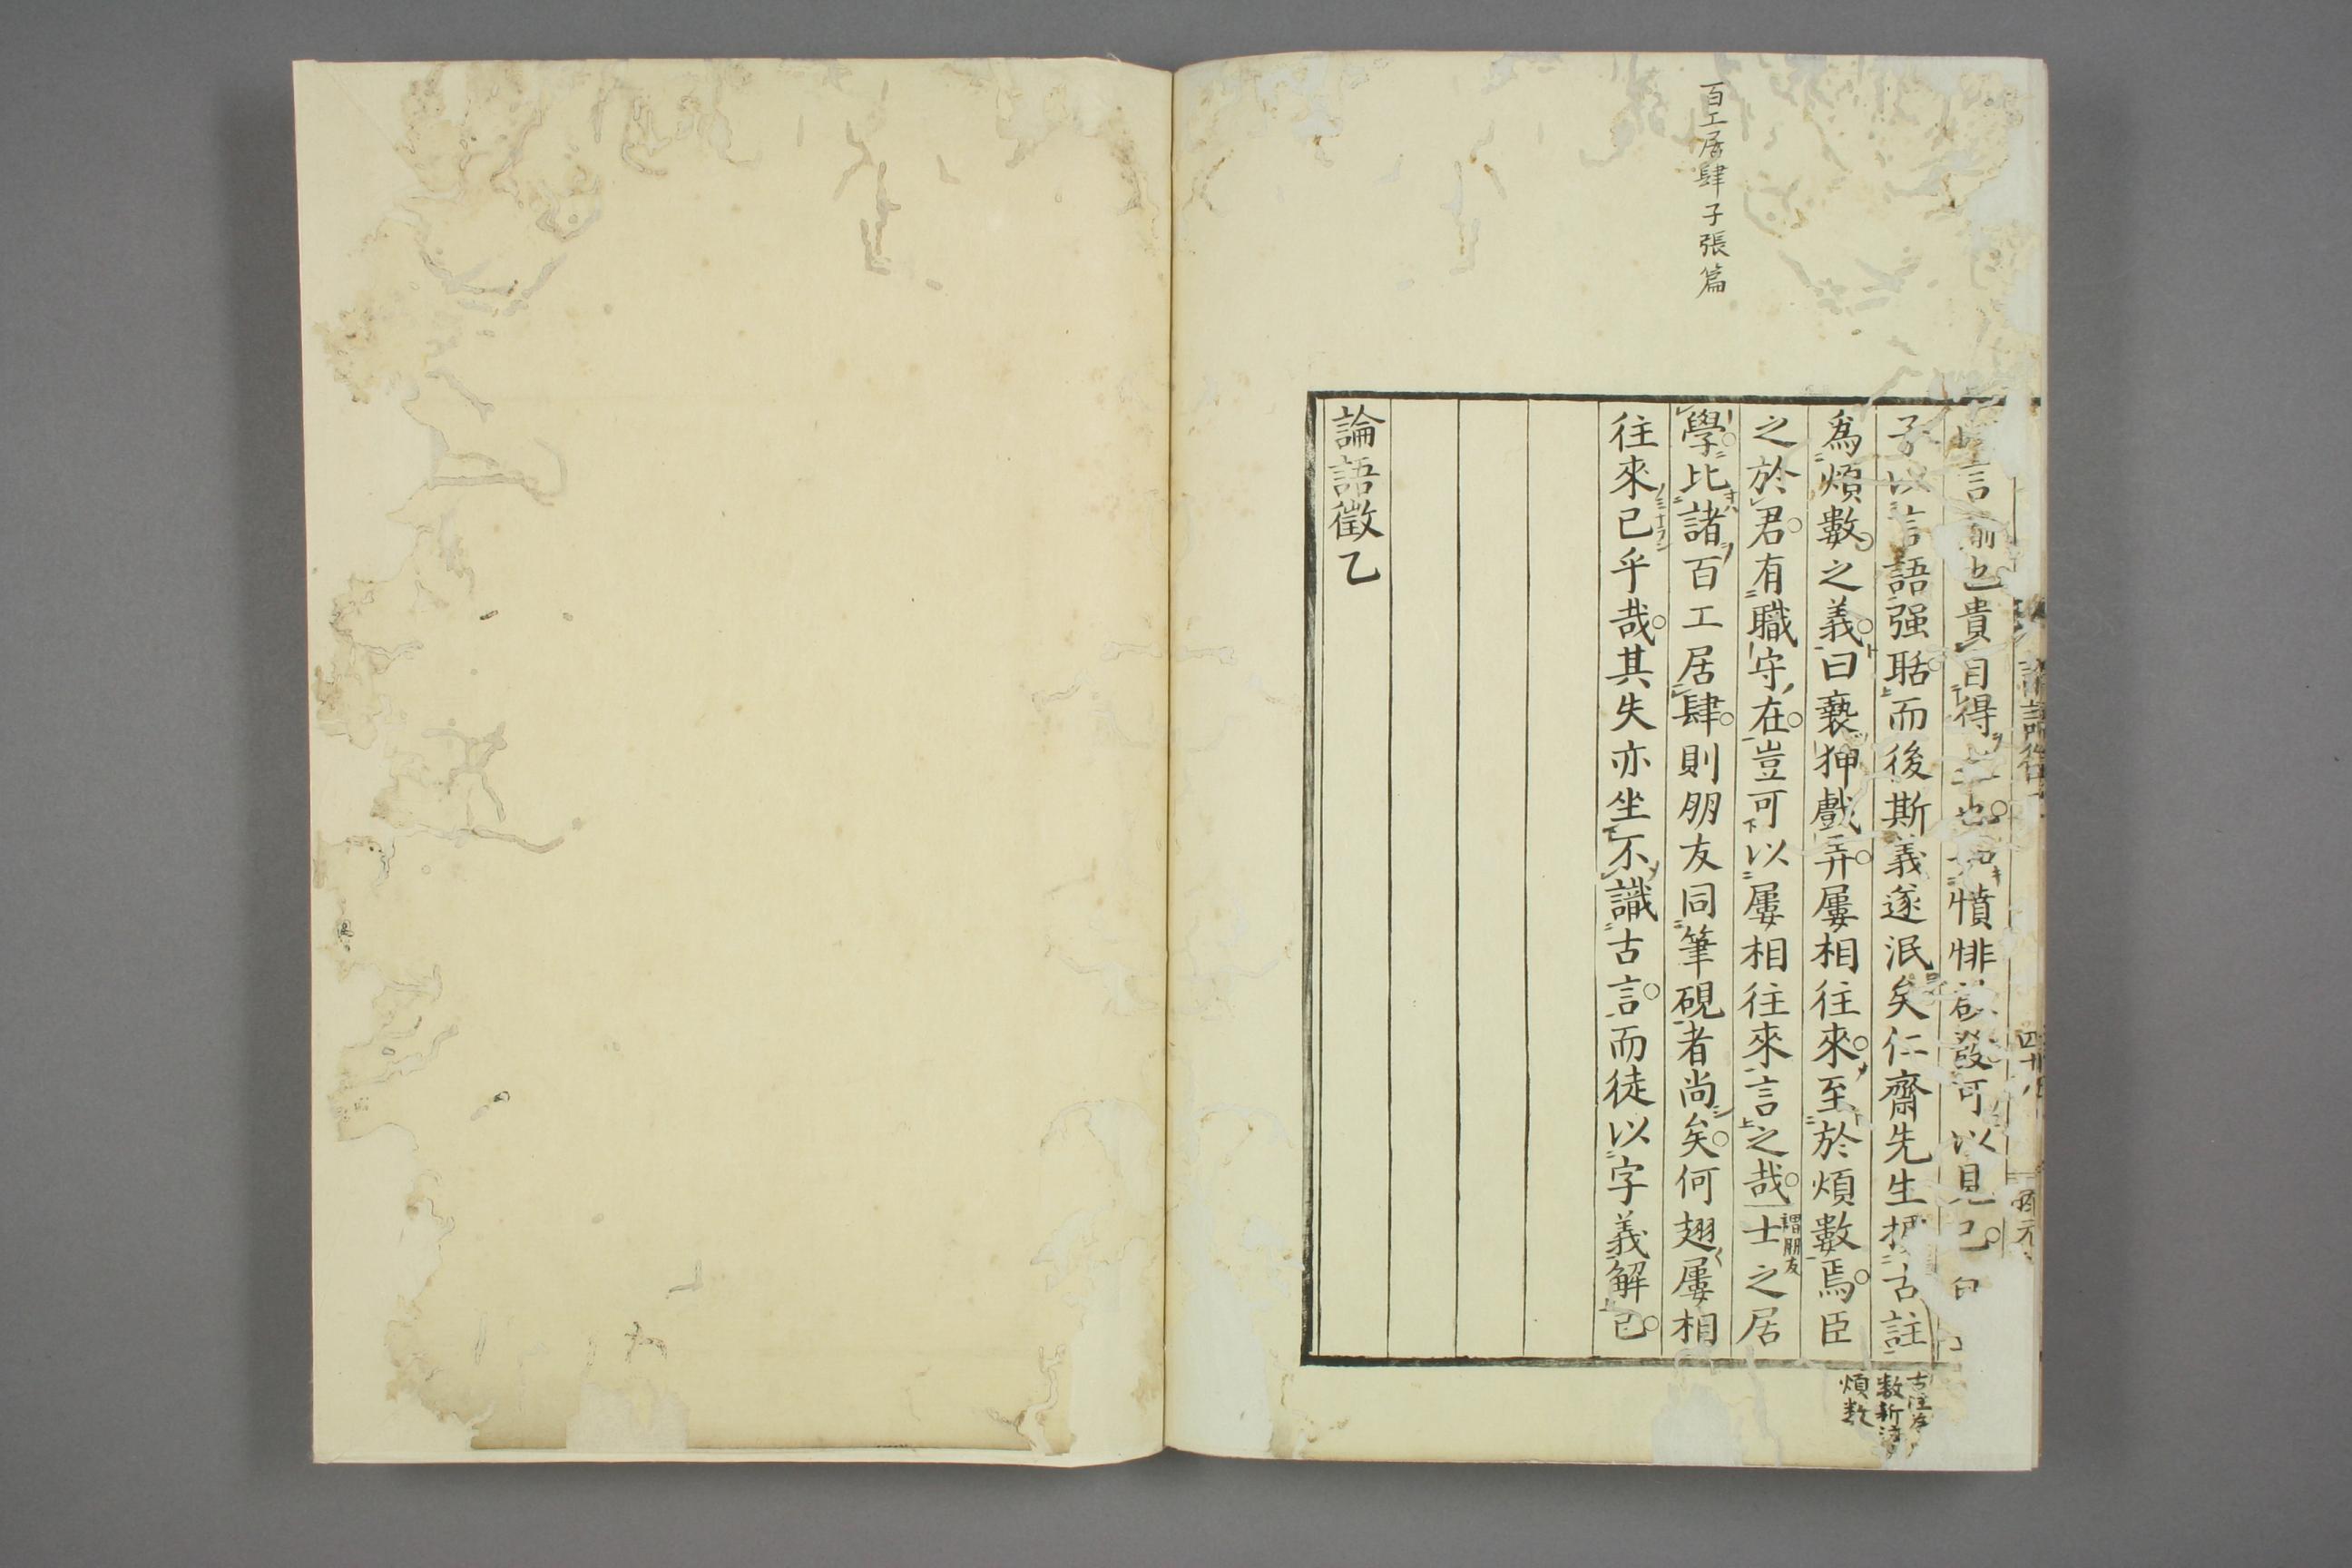 百工居肆子張篇
言　也貴自得　也　憤悱　發可以見已
子以言語强聒而後斯義遂泯矣仁齋先生　古註
爲煩數之義曰褻狎戲弄屢相往來至於煩數焉臣
之於君有職守在豈可以屢相往來言之哉士之居
謂朋友
學比諸百工居肆則朋友同筆硯者尚矣何翅屢相
往來已乎哉其失亦坐不識古言而徒以字義解已
論語徵乙
數新
煩數